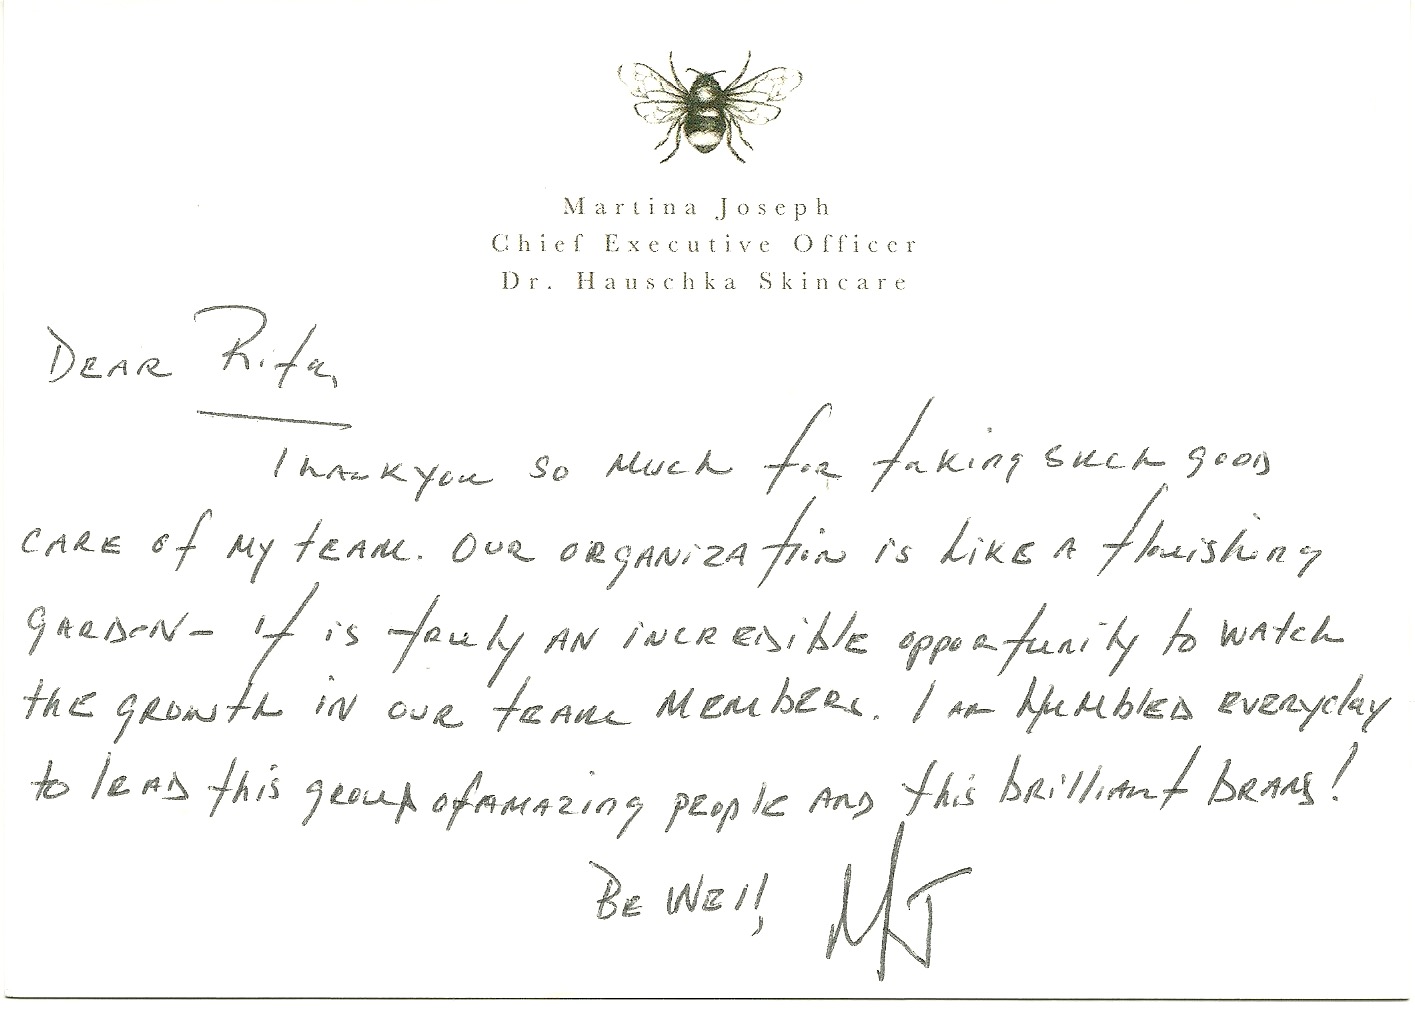 Martina Joseph
Chief Executive Officer
Dr. Hauschka Skincare
DEAR Rita,
Thankyou so much for taking such good
CARE of my team. Our organization is like a flourishing
garden- it is truly an incredible opportunity to watch
the growth in our team members. I am humbled everyday
to lead this group of amazing people and this brilliant brand!
Be Well, MJ